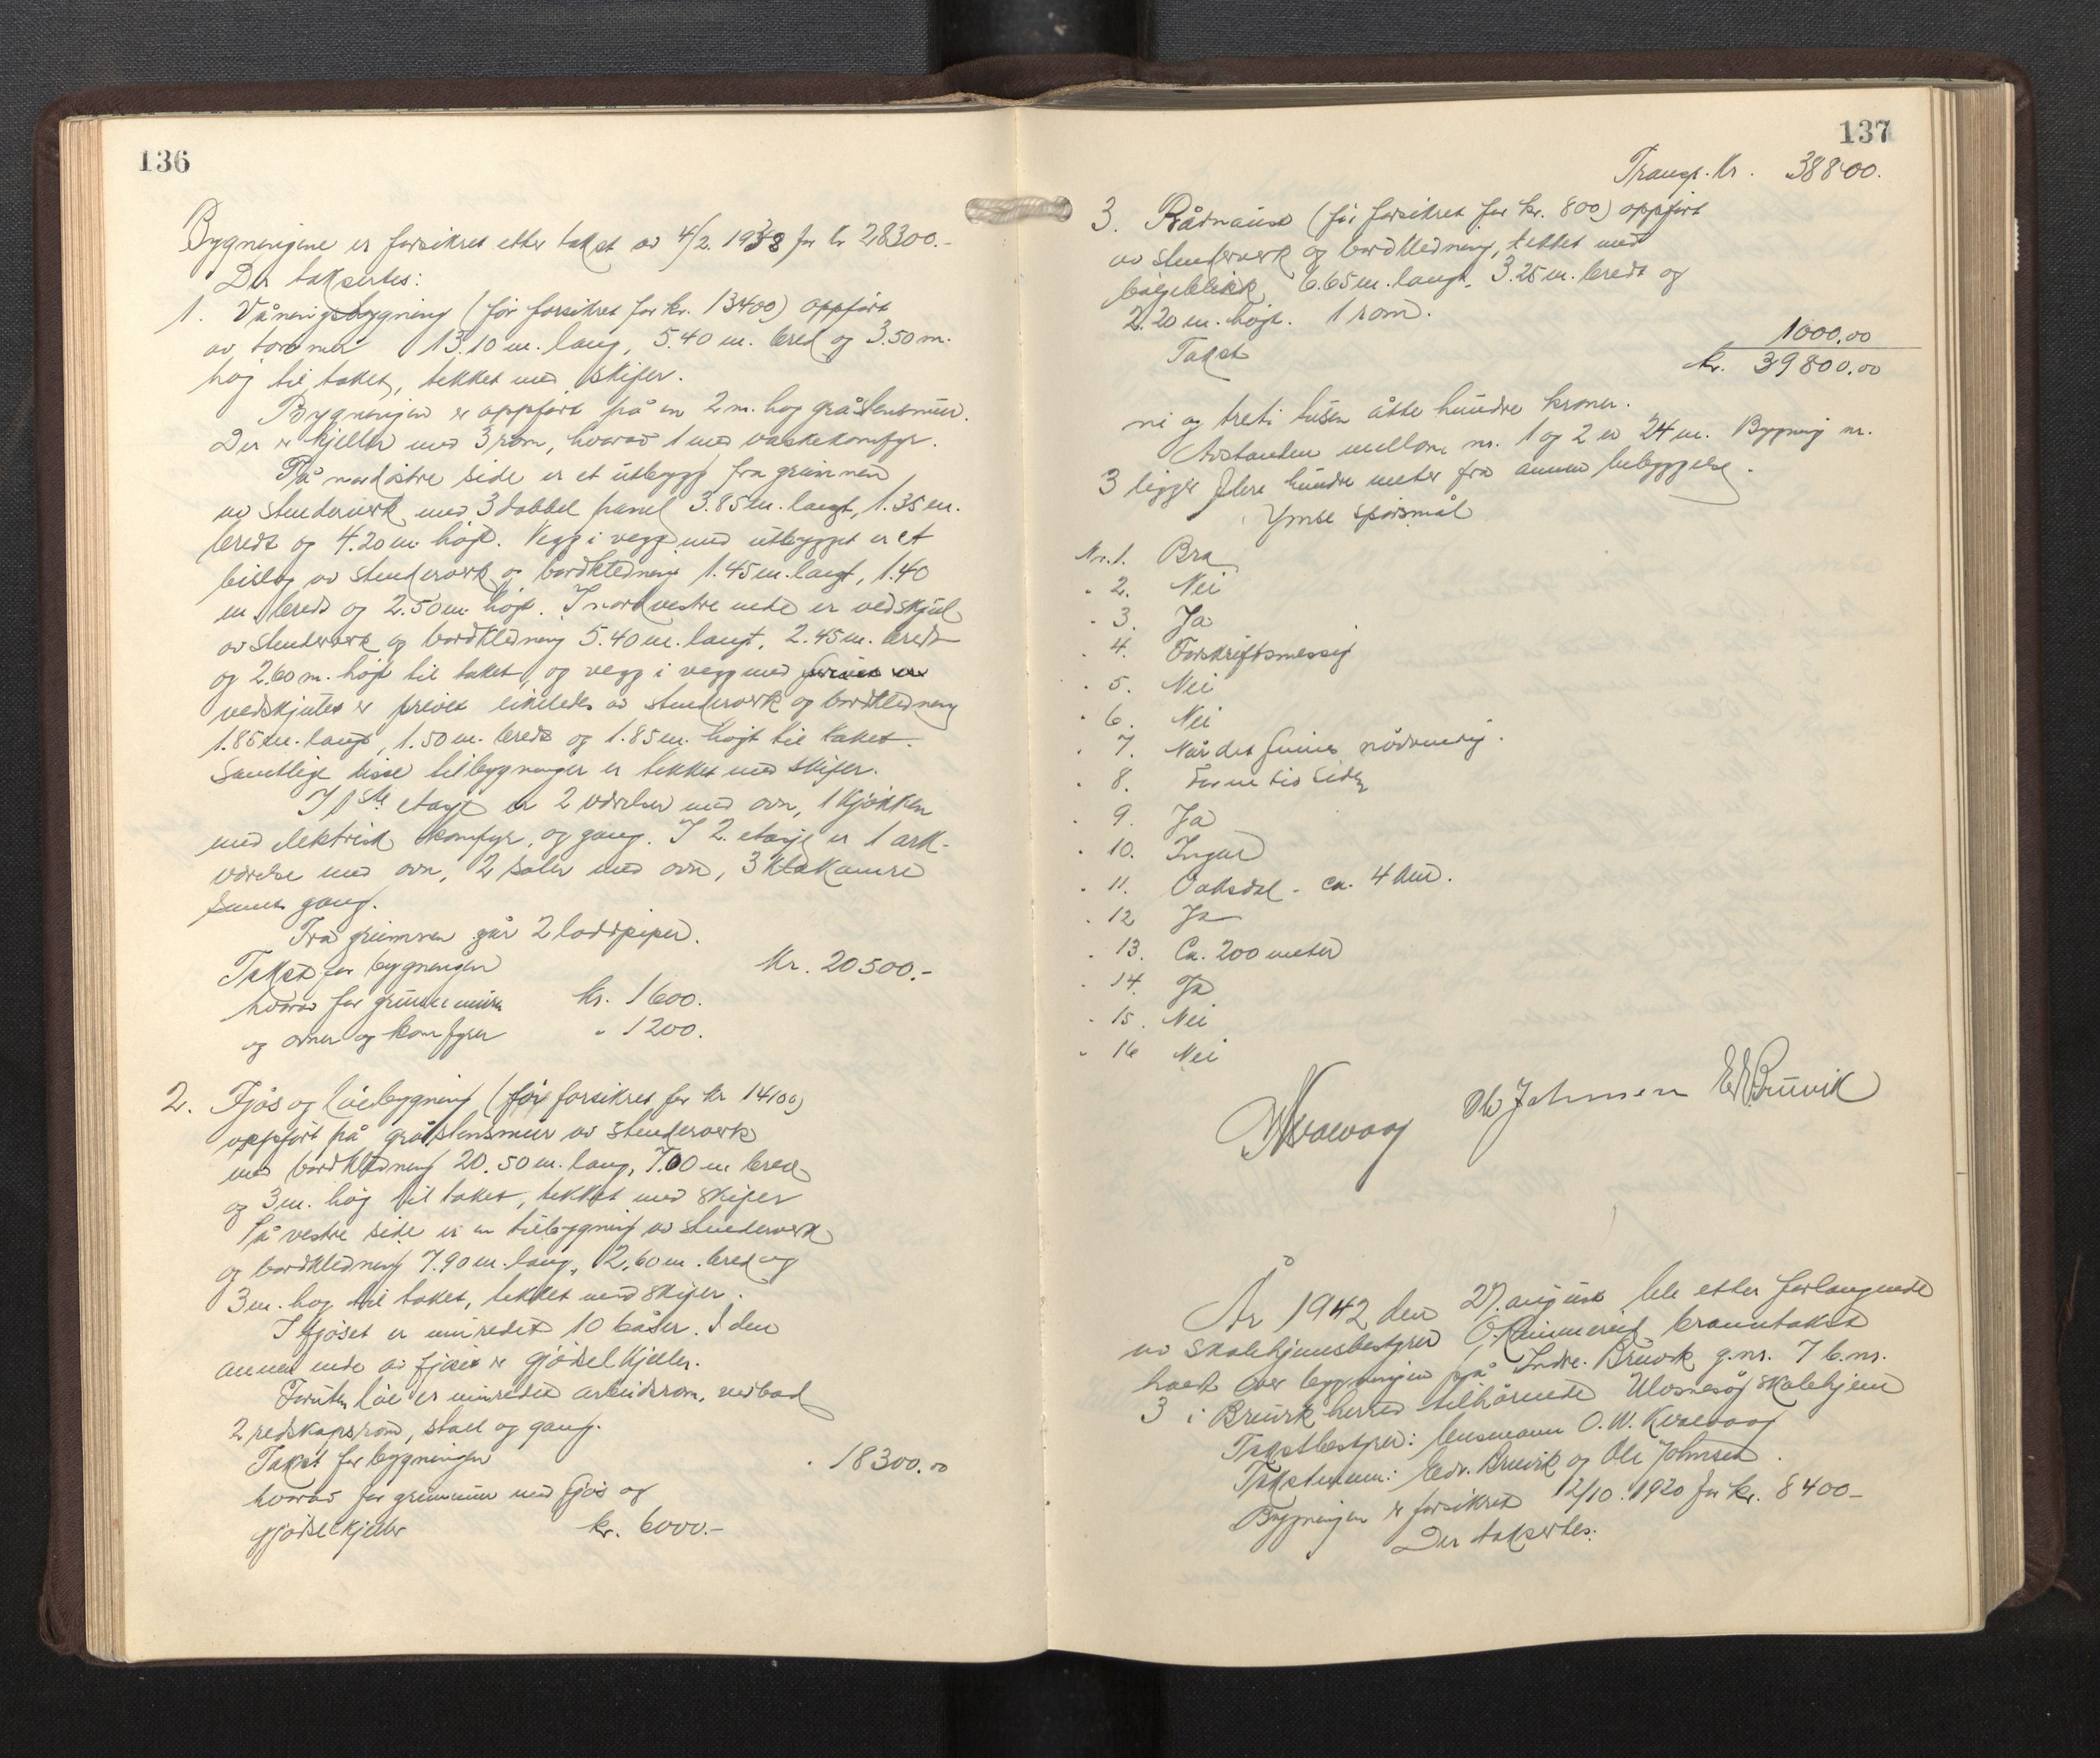 136
Bygningene er forsikret etter takst av 4/2. 1938 for kr 28300.-
Der taksertes:
1. Våningsbygning (før forsikret for kr. 13400) oppført
av tømmer 13.10 m. lang, 5.40 m. bred og 3.50 m.
høg til taket, tekket med skifer.
Bygningen er oppført på en 2 m. høg gråstensmur.
Der er kjeller med 3 rom, hvorav 1 med vaskekomfyr.
På nordøstre side er et utbygg fra grunnen
av stenderverk med 3 dobbel panel 3.85 m. langt, 1.35 m.
bredt og 4.20 m. høgt. Vegg i vegg med utbygget er et
bislag av stenderverk og bordkledning 1.45 m. langt, 1.40
m. bredt og 2.50 m. høgt. I nordvestre ende er vedskjul
av stenderverk og bordkledning 5.40 m. langt, 2.45 m. bredt
og 2.60 m. høgt til taket, og vegg i vegg med
vedskjulet er privet likeledes av stenderverk og bordkledning
1.85 m. langt, 1.50 m. bredt og 1.85 m. høgt til taket.
Samtlige disse tilbygninger er tekket med skifer.
I 1ste etage er 2 værelser med ovn, 1 kjøkken
med elektrisk komfyr, og gang. I 2. etasje er 1 ark-
værelse med ovn, 2 saler med ovn, 3 klækamre
samt gang.
Fra grunnen går 2 loddpiper.
Takst for bygningen Kr. 20500.-
hvorav for grunnmuren kr. 1600.
og ovner og komfyrer " 1200.
2. Fjøs og løebygning (før forsikret for kr 14100)
oppført på gråstensmur av stenderverk
med bordkledning 20.50 m. lang, 7.00 m bred
og 3 m. høg til taket, tekket med skifer
På vestre side er en tilbygning av stenderverk
og bordkledning 7.90 m. lang, 2.60 m. bred og
3 m. høg til taket, tekket med skifer.
I fjøset er innredet 10 båser. I den
annen ende av fjøset er gjødselkjeller.
Foruten løe er innredet arbeidsrom, vedbod
2 redskapsrom, stall og gang.
Takst for bygningen " 18300.00
hvorav for grunnmur med fjøs og
gjødselkjeller kr. 6000.-
137
Transp. Kr. 38800.
3. Bådnaust (før forsikret for kr. 800) oppført
av stenderverk og bordkledning, tekket med
bølgeblikk 6.65 m. langt, 3.25 m. bredt og
2.20 m. høgt. 1 rom.
Takst 1000.00
kr. 39800.00
ni og treti tusen åtte hundre kroner.
Avstanden mellom nr. 1 og 2 er 24 m. Bygning nr.
3 ligger flere hundre meter fra annen bebyggelse.
Ymse spørsmål
Nr. 1. Bra
" 2. Nei
" 3. Ja
" 4. Forskriftsmessig
" 5. Nei
" 6. Nei
" 7. Når det finnes nødvendig.
" 8. Lenne tid siden
" 9. Ja
" 10. Ingen
" 11. Vaksdal - ca. 4 km.
" 12 Ja
" 13. Ca. 200 meter
" 14. Ja
" 15. Nei
" 16 Nei
OWKvævaag Ole Johnsen E.E. Bruvik
År 1942 den 27. august ble etter forlangende
av skolehjemsbestyrer branntakst
holdt over bygningen på Indre Bruvik g.nr. 7 b.nr.
3 i Bruvik herred tilhørende Ulvsnesøy skolehjem
Takstbestyrer: lensmann O. W. Kvævaag
Takstmenn: Edv. Bruvik og Ole Johnsen.
Bygningen er forsikret 12/10. 1920 for kr. 8400-
Der taksertes: